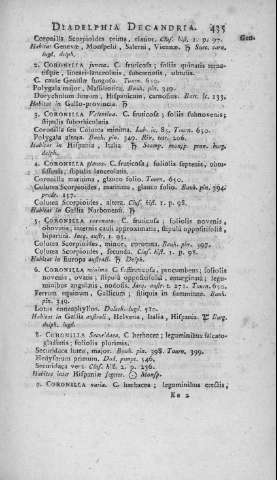 DIADELPHIA DECANDRIA. 435
Coronilla Scorpioides prima, elatior. Cluf. hift. 1. p. 97.
Habitat Genevæ, Monfpelii, Salerni, Viennæ. ♄ Sauv.
lugd. delph.
2. CORONILLA juncea. C. fruticofa; foliis quinatis
C. caule Genifte fungofo. Tourn. 650.
Polygala major, Maffiliotica. Bauh. pin. 349.
Dorycnium luteum, Hifpanicum, carnofius. Barr. Ic. 133.
Habitat in Gallo-provincia ♄
3. CORONILLA Valentina. C. fruticofa; foliis fubnovenis;
ftipulis fuborbiculatis.
Coronilla feu Colutea minima. Lob. ic. 87. Tourn. 650.
Polygala altera. Bauh. pin. 349. Riv. tetr. 206.
Habitat in Hifpania, Italia ♄
delph.
4. CORONILLA glauca. C. fruticofa; foliolis feptenis,
tufiffimis; ftipulis lanceolatis.
Coronilla maritima, glauco folio. Tourn. 650.
Colutea Scorpioides, maritima, glauco folio. Bauh. pin. 397.
prodr. 157.
Colutea Scorpioides, altera. Cluf. hift. 1. p. 98.
Habitat in Gallia Narbonenfi. ♄
5. CORONILLA coronata. C. fruticofa; foliolis novenis,
obovatis; internis cauli approximatis; ftipula oppofitifolia,
bipartita. Jacq. auftr. t. 95.
Colutea Scorpioides, minor, coronata. Bauh. pin. 397.
Colutea Scorpioides, fecunda. Cluf. hift. 1. p. 98.
Habitat in Europa auftrali. ♄ Delph.
6. CORONILLA minima. C. fuffruticofa, procumbens; foliolis
novenis, ovatis; ftipula oppofitifolia, emarginata; legu-
minibus angulatis, nodofis. Jacq. auftr. t. 271. Tourn. 650.
Ferrum equinum, Gallicum; filiquis in fummitate. Bauh.
pin. 349.
Lotus enneaphyllos. Dalech. lugd. 510.
Habitat in Gallia auftrali, Helvetia, Italia, Hifpania.
delph. lugd.
8. CORONILLA Securidaca. C. herbacea; leguminibus falcato-
gladiatis; foliolis plurimis.
Securidaca lutea, major. Bauh. pin. 398. Tourn. 399.
Hedyfarum primum. Dod. pempt. 546.
Securidaca vera. Cluf. hift. 2. p. 236.
Habitat inter Hifpaniæ fegetes. ☉ Monfp.
9. CORONILLA varia. C. herbacea; leguminibus erectis,
Ee 2